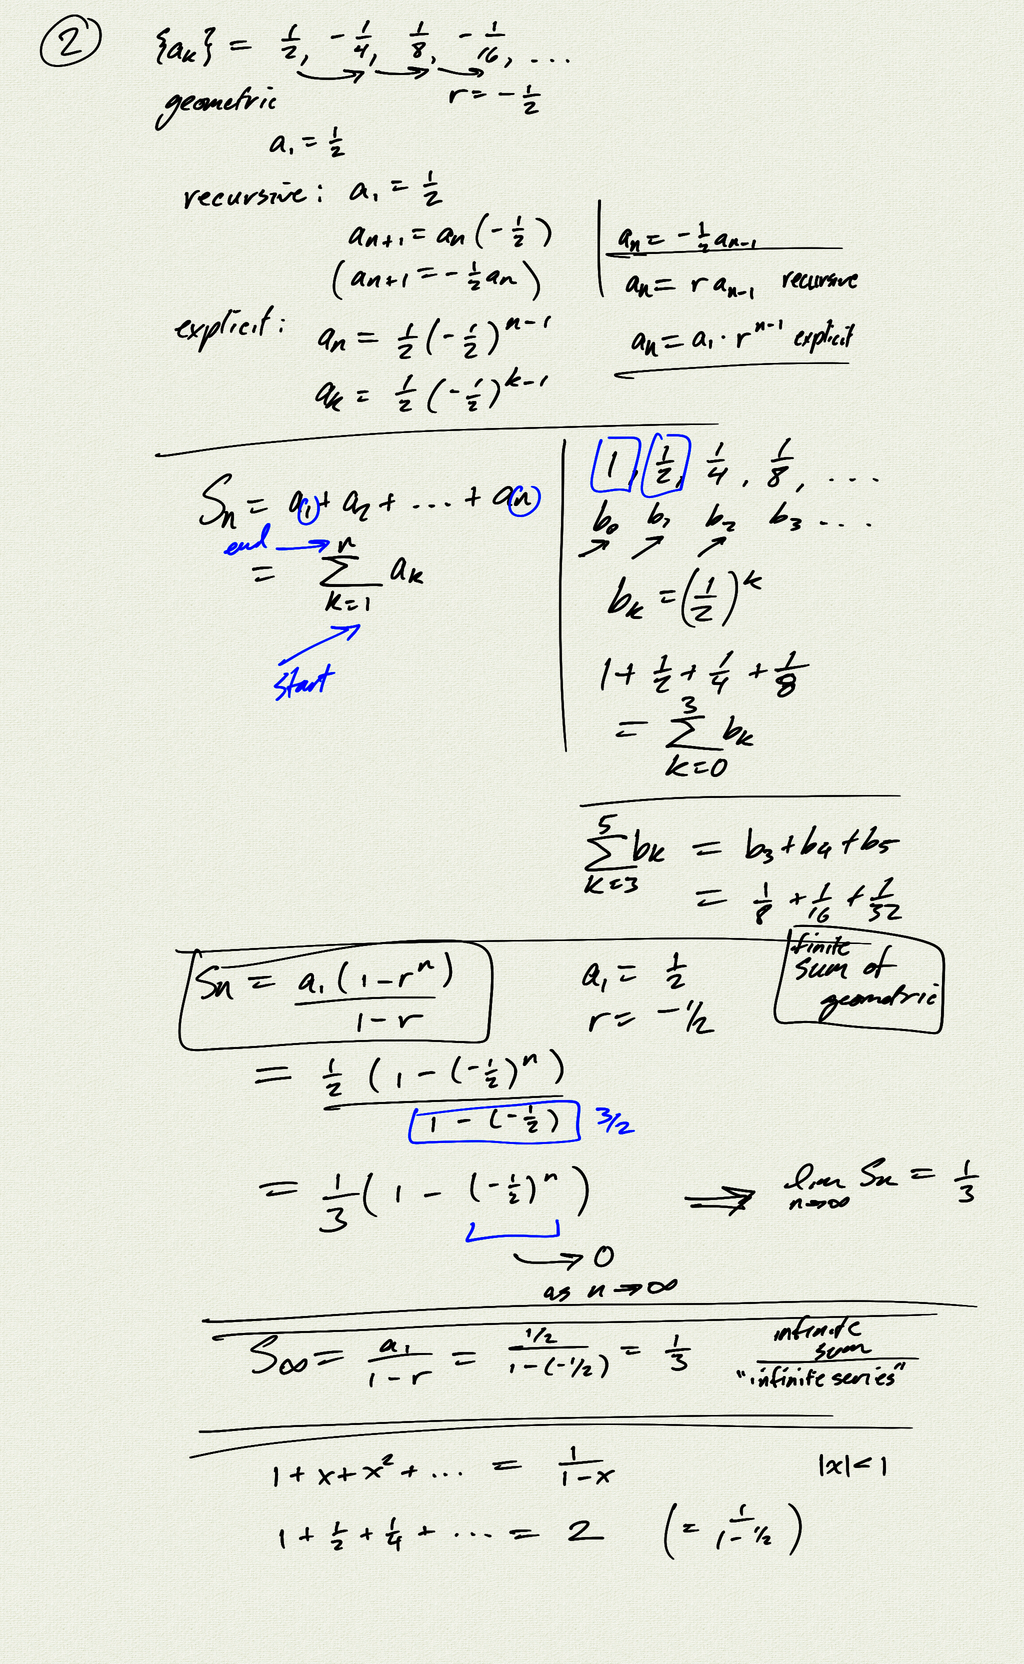 ② {aₖ} = 1/2, -1/4, 1/8, -1/16, ...
geometric r = -1/2
a₁ = 1/2
recursive: a₁ = 1/2
aₙ₊₁ = aₙ(-1/2)
(aₙ₊₁ = -1/2 aₙ)
explicit: aₙ = 1/2 (-1/2)ⁿ⁻¹
aₖ = 1/2 (-1/2)ᵏ⁻¹
aₙ = -1/2 aₙ₋₁
aₙ = r aₙ₋₁ recursive
aₙ = a₁ · rⁿ⁻¹ explicit
Sₙ = a₁ + a₂ + ... + aₙ
end →
= ∑_{k=1}^{n} aₖ
start
1, 1/2, 1/4, 1/8, ...
b₀ b₁ b₂ b₃ ...
bₖ = (1/2)ᵏ
1 + 1/2 + 1/4 + 1/8
= ∑_{k=0}^{3} bₖ
∑_{k=3}^{5} bₖ = b₃ + b₄ + b₅
= 1/8 + 1/16 + 1/32
Sₙ = a₁(1-rⁿ)/(1-r)
a₁ = 1/2
r = -1/2
finite
sum of
geometric
= 1/2 (1 - (-1/2)ⁿ) / (1 - (-1/2)) 3/2
= 1/3 (1 - (-1/2)ⁿ) ⟹ lim_{n→∞} Sₙ = 1/3
→ 0
as n → ∞
S∞ = a₁/(1-r) = (1/2)/(1-(-1/2)) = 1/3
infinite
sum
"infinite series"
1 + x + x² + ... = 1/(1-x) |x| < 1
1 + 1/2 + 1/4 + ... = 2 (= 1/(1-1/2))